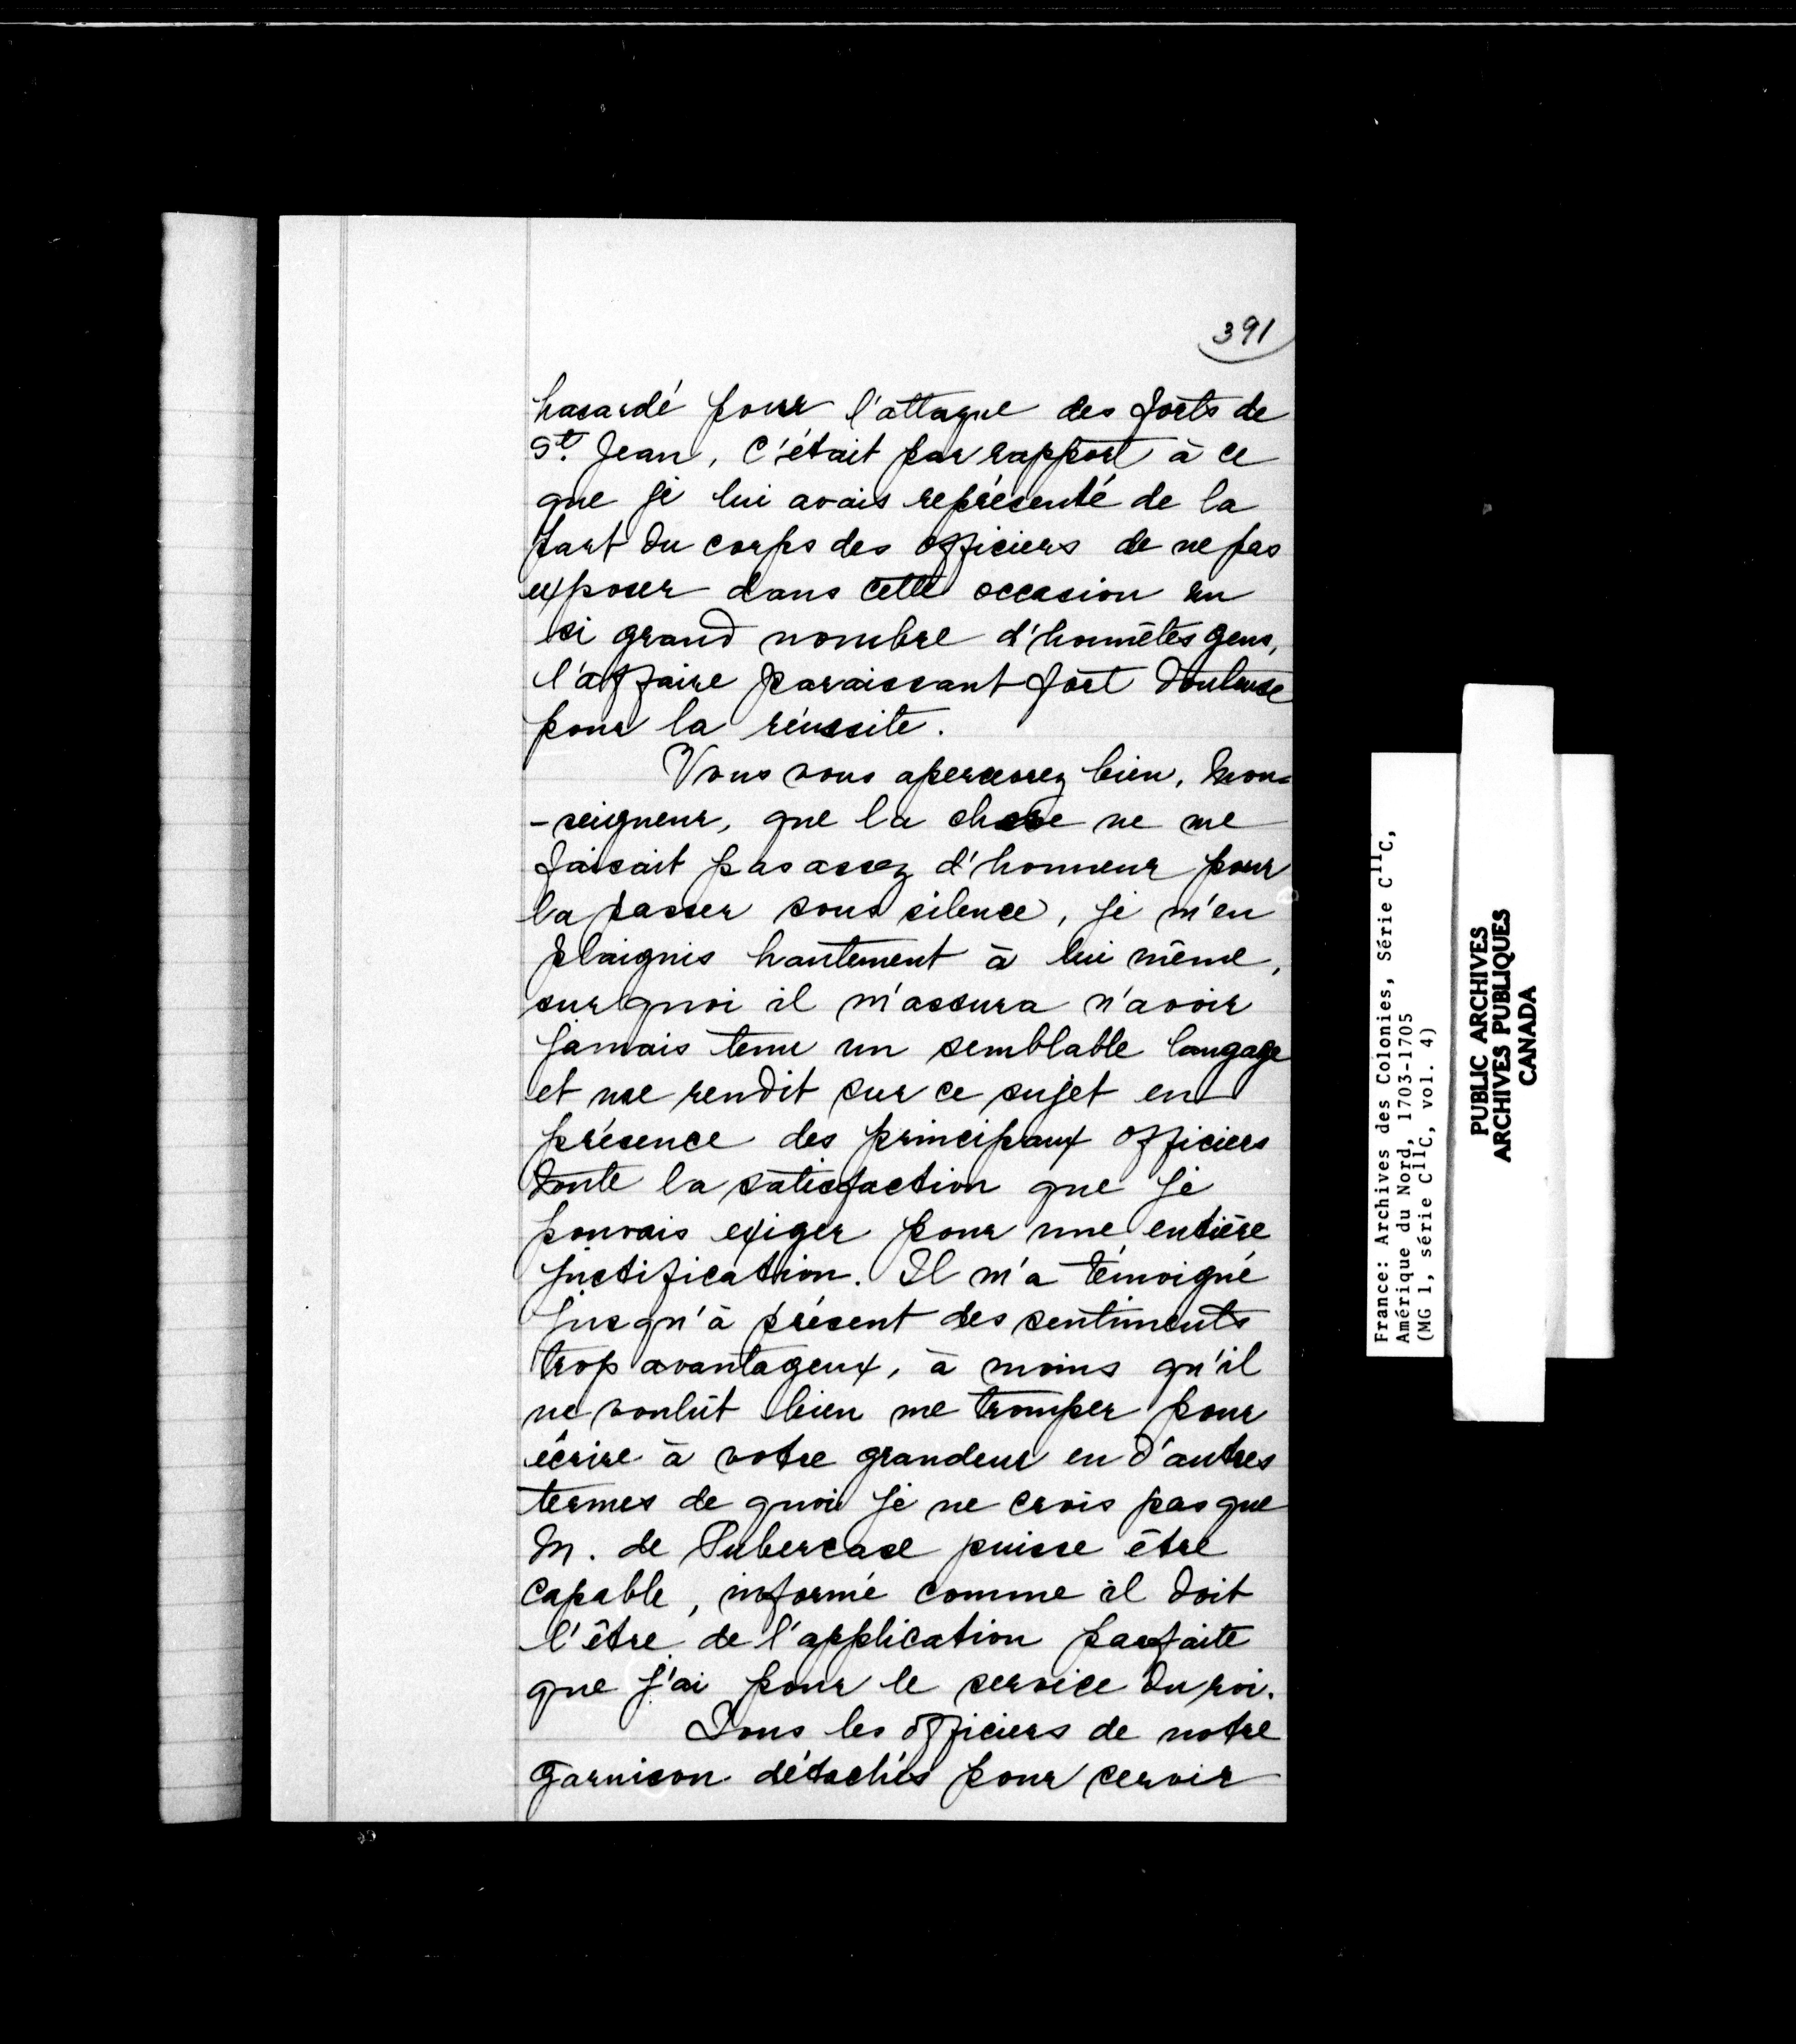 391
hasardé pour l'attaque des forts de
St. Jean, c'était par rapport à ce
que je lui avais représenté de la
part du corps des officiers de ne pas
exposer dans cette occasion un
si grand nombre d'honnêtes gens,
l'affaire paraissant fort douteuse
pour la réussite.
Vous vous apercevrez bien, Mon=
-seigneur, que la chose ne me
faisait pas assez d'honneur pour
la passer sous silence, je m'en
plaignis hautement à lui même,
sur quoi il m'assura n'avoir
jamais tenu un semblable langage
et me rendit sur ce sujet en
présence des principaux officiers
toute la satisfaction que je
pouvais exiger pour une entière
justification. Il m'a témoigné
jusqu'à présent des sentiments
trop avantageux, à moins qu'il
ne voulût bien me tromper pour
écrire à votre grandeur en d'autres
termes de quoi je ne crois pas que
M. de Subercase puisse être
capable, informé comme il doit
l'être de l'application parfaite
que j'ai pour le service du roi.
Tous les officiers de notre
garnison détachés pour servir
France: Archives des Colonies, Série C11C,
Amérique du Nord, 1703-1705
(MG 1, série C11C, vol. 4)
PUBLIC ARCHIVES
ARCHIVES PUBLIQUES
CANADA